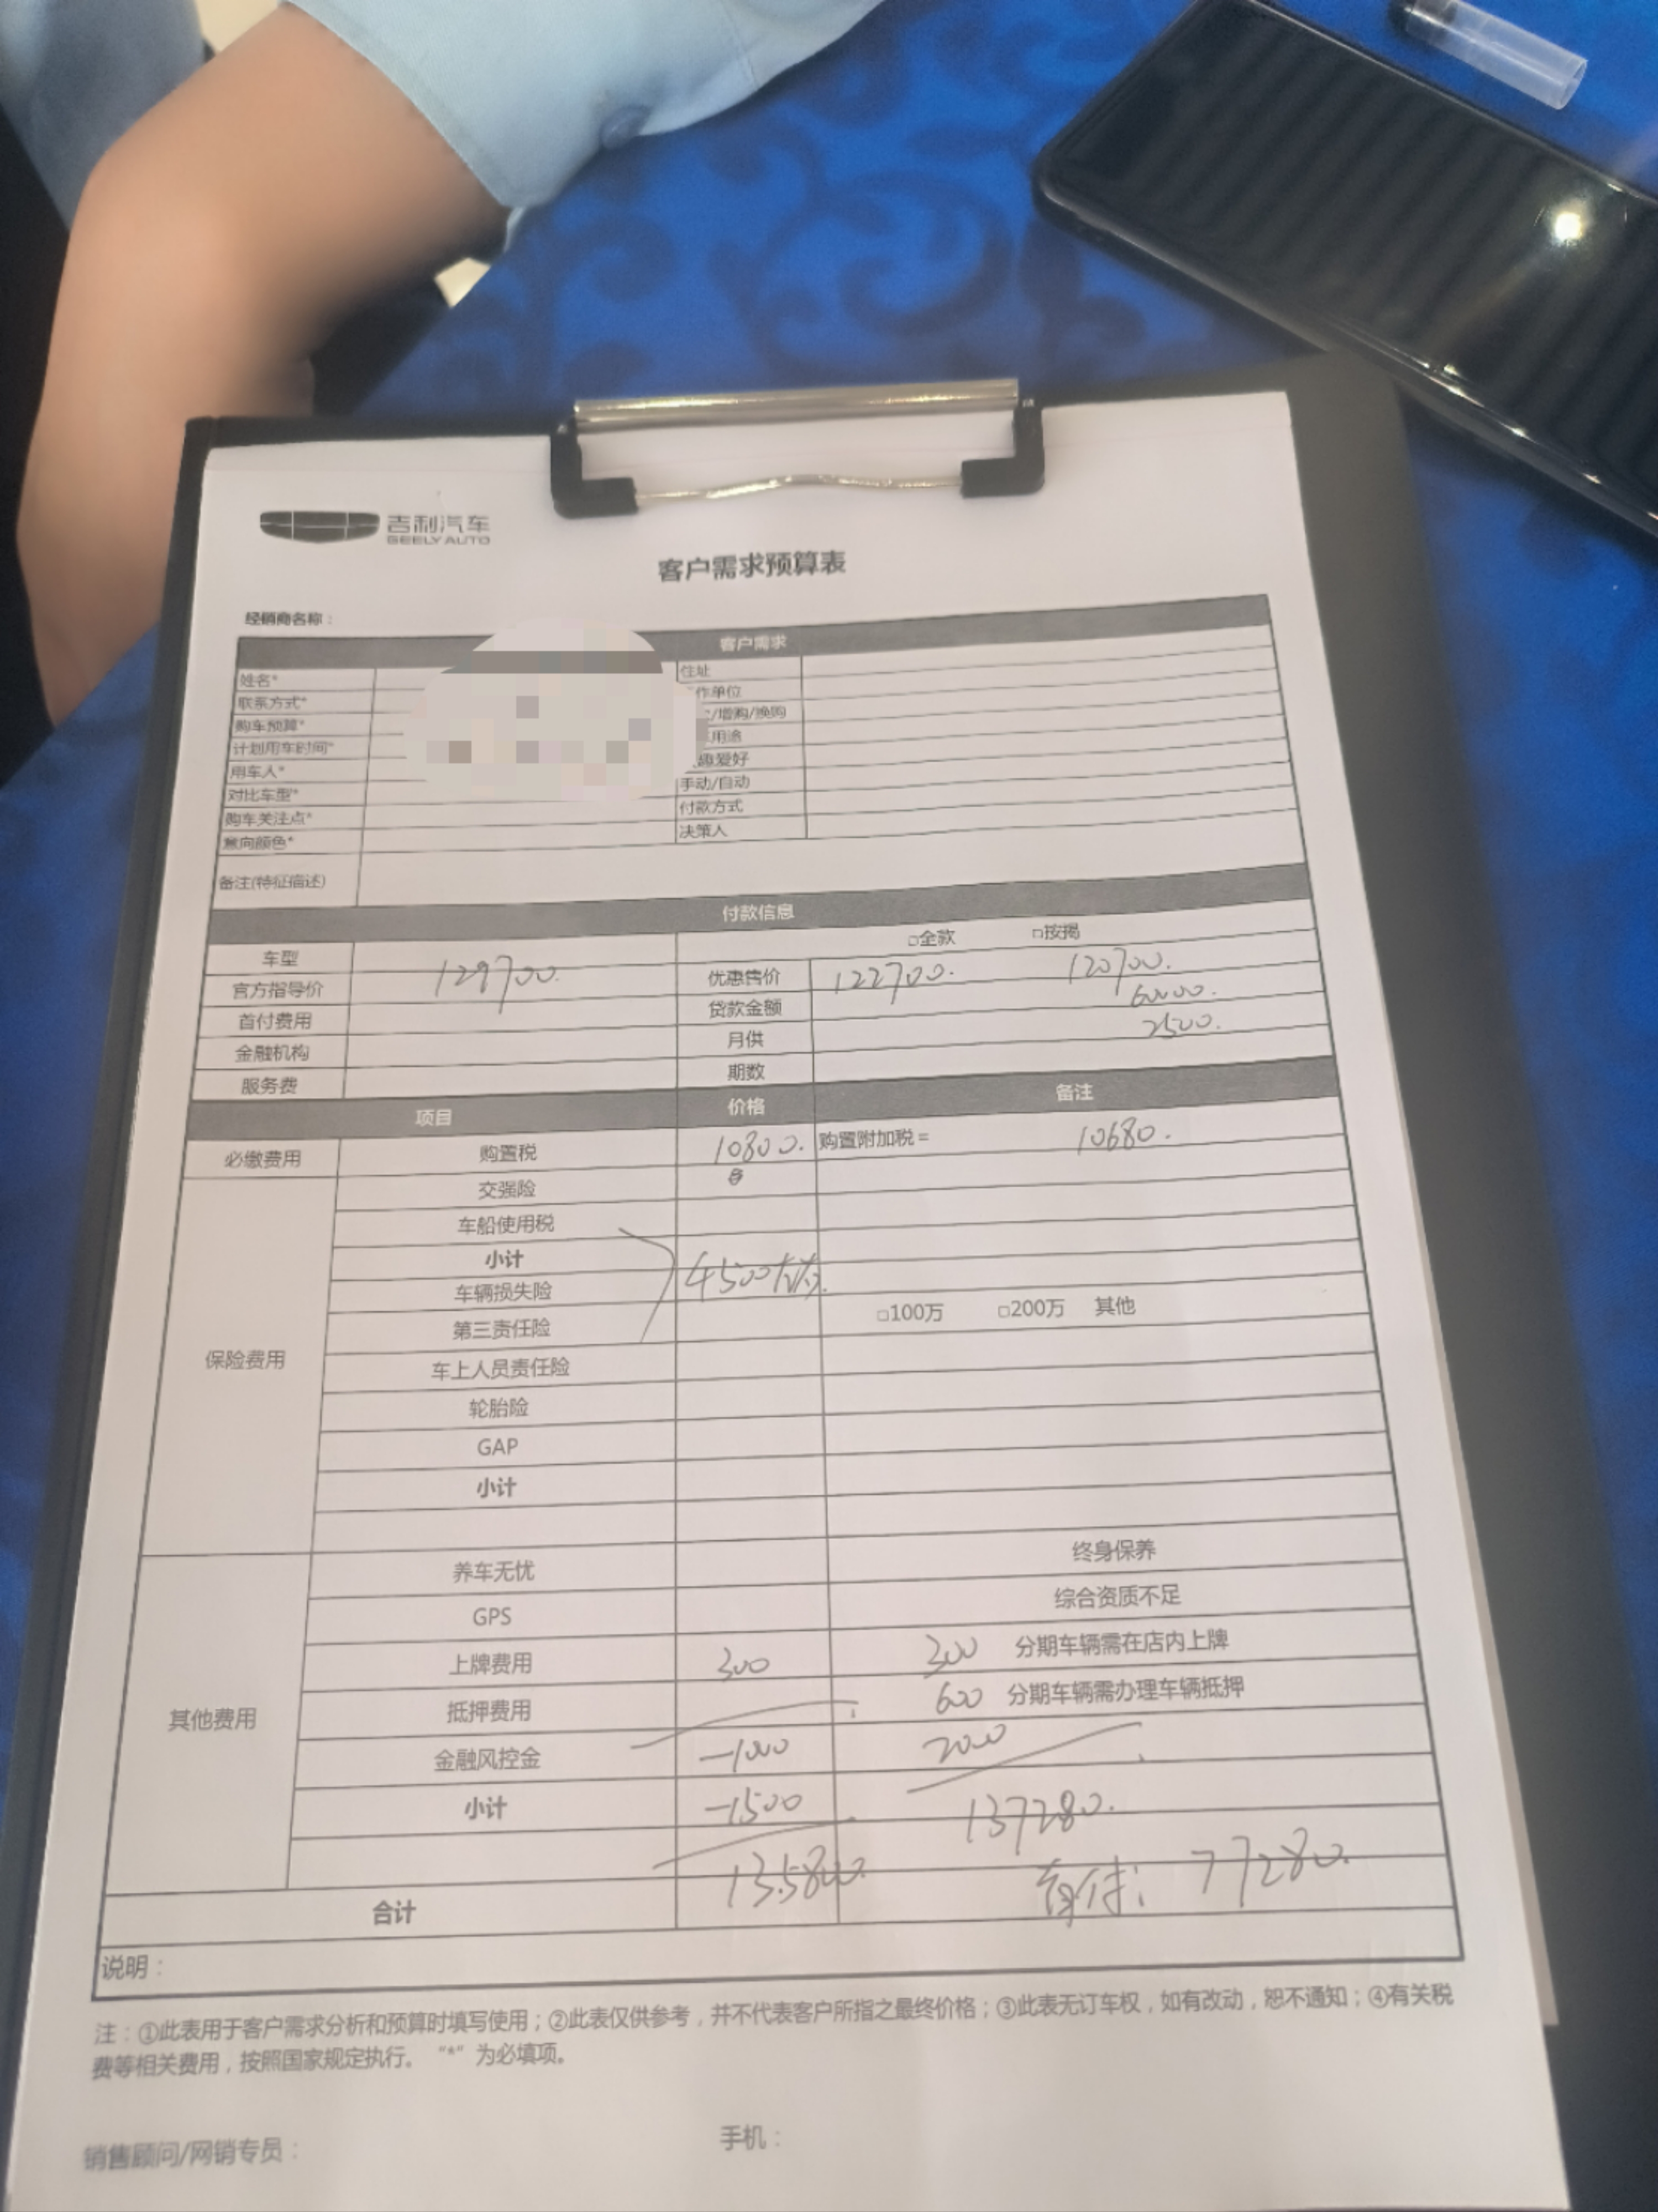 吉利汽车
GEELY AUTO
客户需求预算表
经销商名称：
客户需求
姓名* 住址
联系方式* 作单位
购车预算* /增购/换购
计划用车时间* 用途
用车人* 趣爱好
对比车型* 手动/自动
购车关注点* 付款方式
意向颜色* 决策人
备注(特征描述)
付款信息
车型 □全款 □按揭
官方指导价 129700. 优惠售价 122700. 120700.
首付费用 贷款金额 60000.
金融机构 月供 2500.
服务费 期数
项目 价格 备注
必缴费用 购置税 10800. 购置附加税= 10680.
保险费用 交强险
车船使用税
小计
车辆损失险 4500
第三责任险 □100万 □200万 其他
车上人员责任险
轮胎险
GAP
小计
其他费用 养车无忧 终身保养
GPS 综合资质不足
上牌费用 300 300 分期车辆需在店内上牌
抵押费用 600 分期车辆需办理车辆抵押
金融风控金 -1000 2000
小计 -1500 137280.
合计 135800. 首付: 77280.
说明：
注：①此表用于客户需求分析和预算时填写使用；②此表仅供参考，并不代表客户所指之最终价格；③此表无订车权，如有改动，恕不通知；④有关税
费等相关费用，按照国家规定执行。“*”为必填项。
销售顾问/网销专员： 手机：